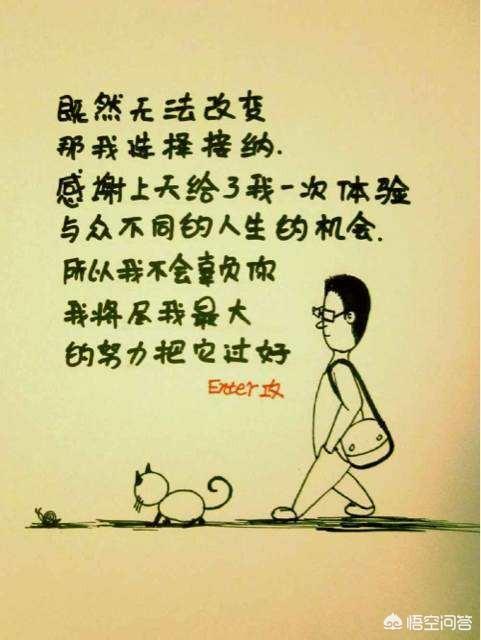 既然无法改变
那我选择接纳.
感谢上天给了我一次体验
与众不同的人生的机会.
所以我不会辜负你
我将尽我最大
的努力把它过好
Enter攻
悟空问答